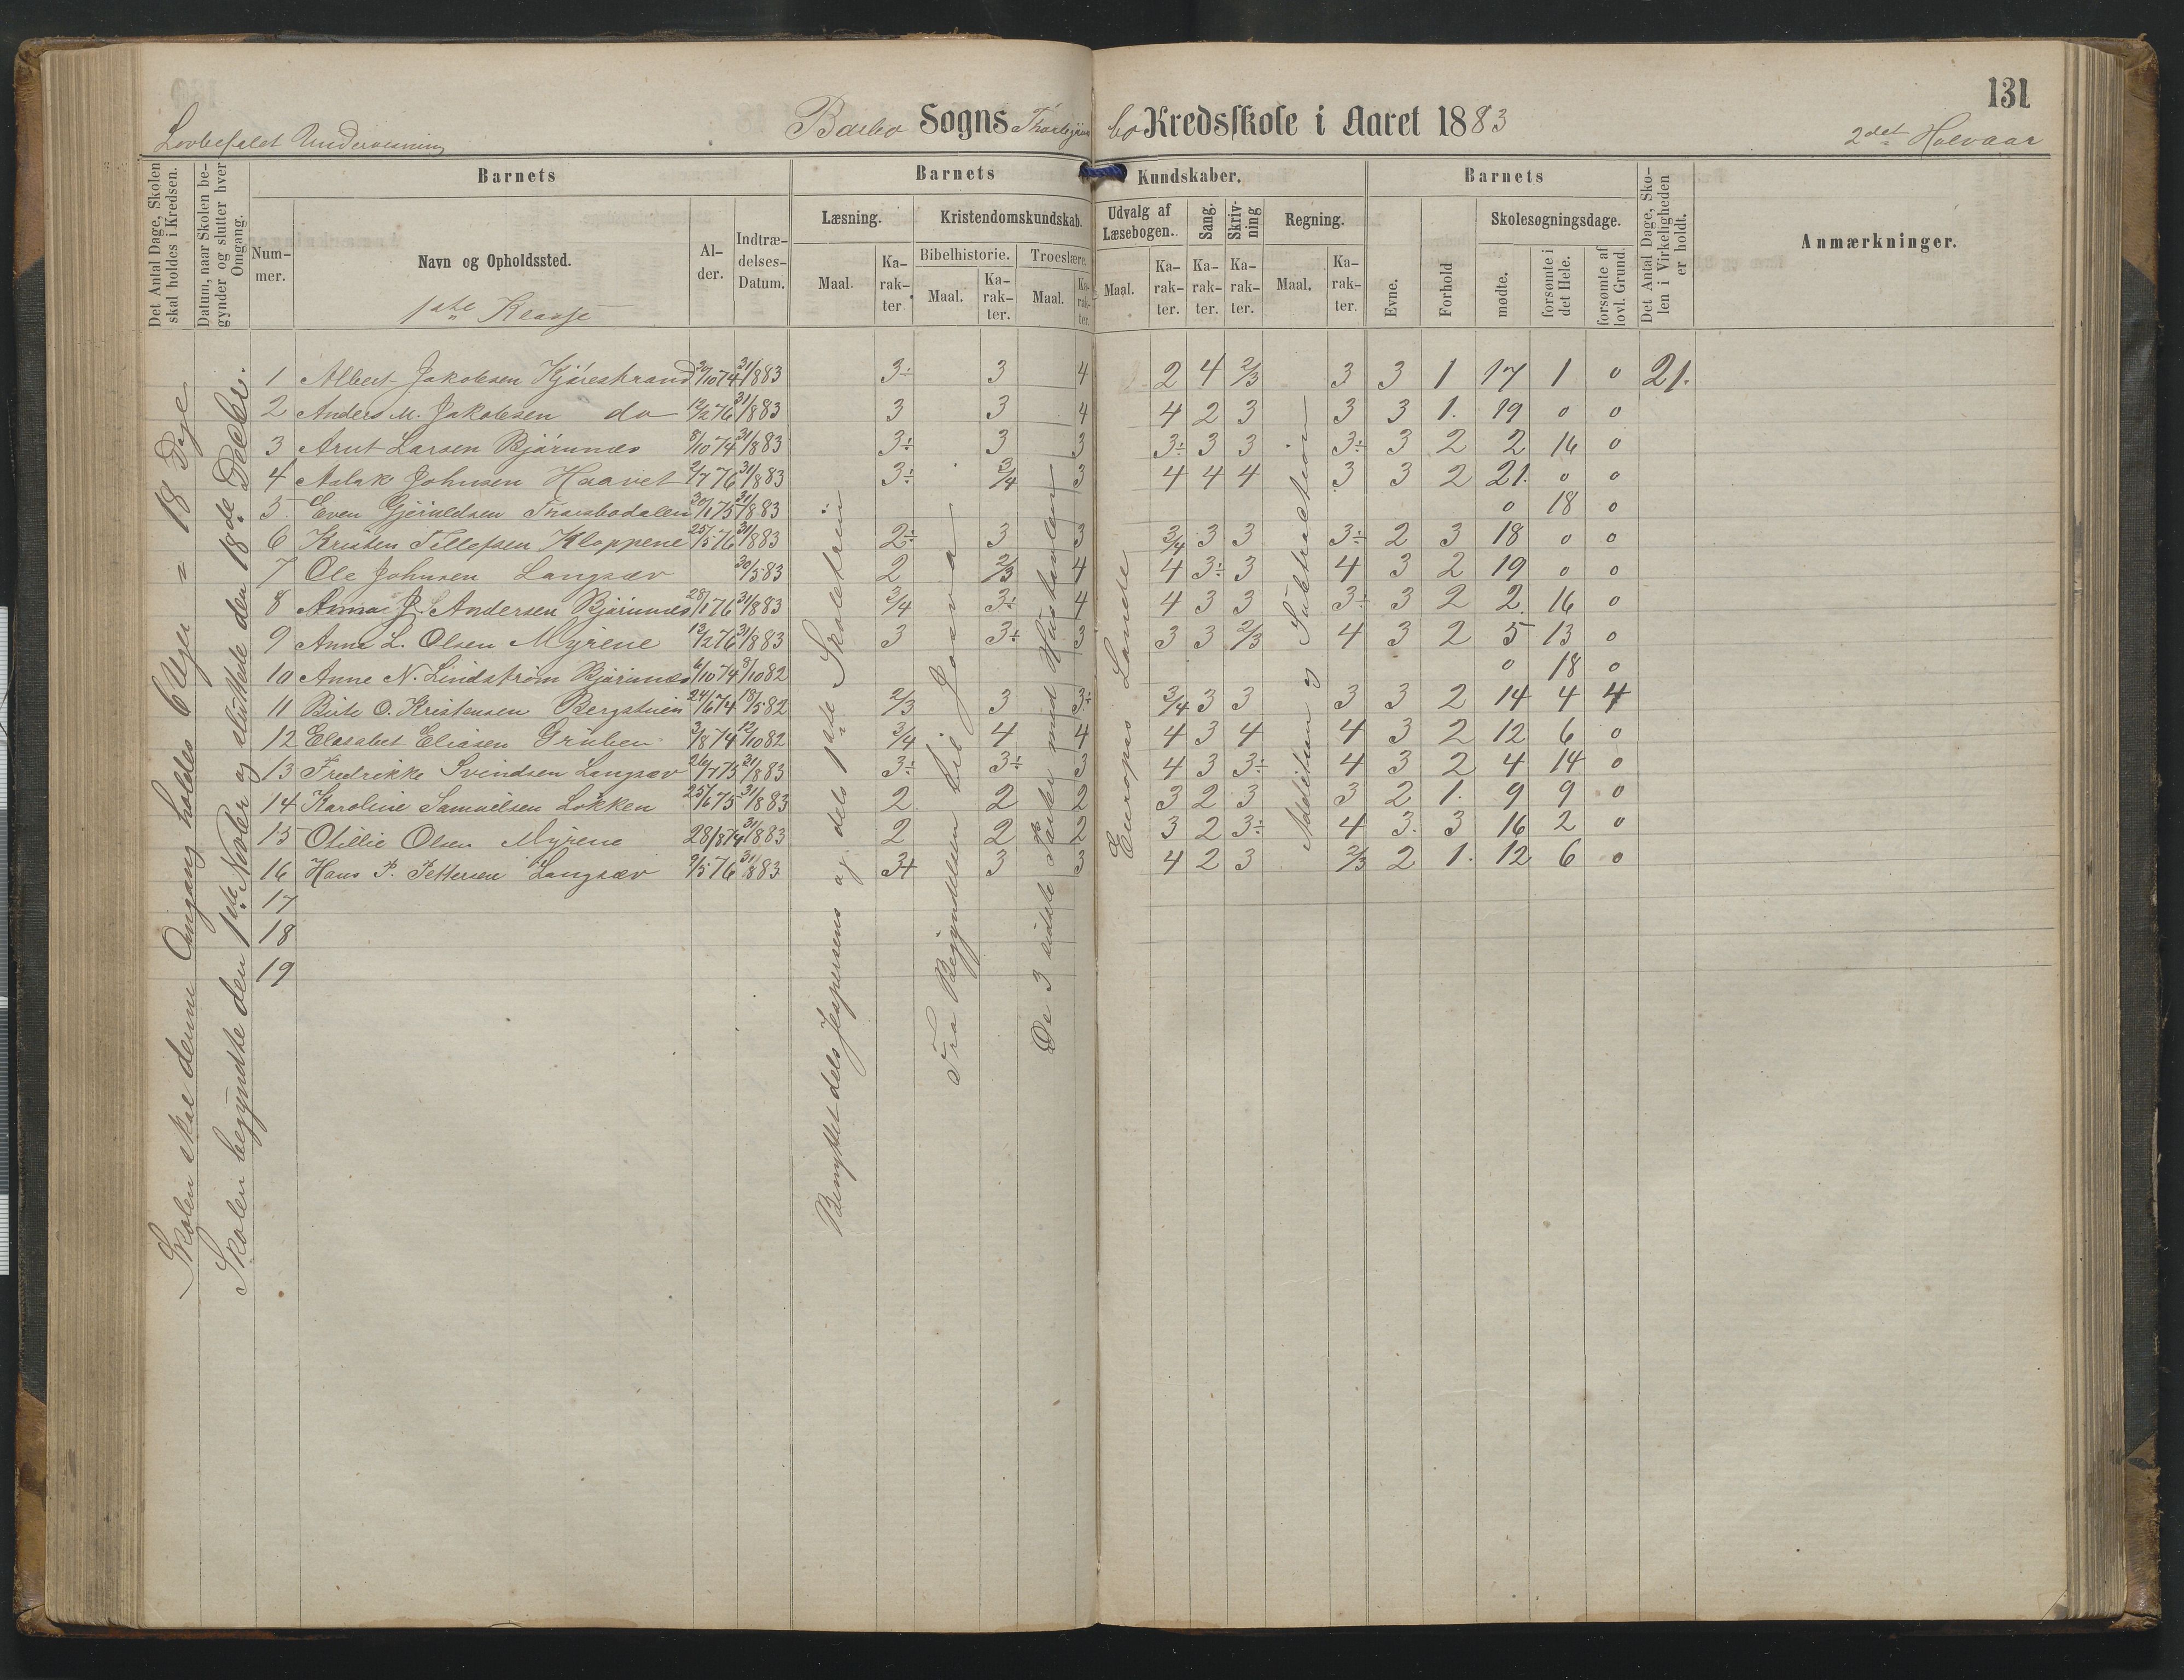 131
Lovbefalet Undervisning Barbo Sogns bo Kredsskole i Aaret 1883 2det Halvaar
Det Antal Dage, Skolen skal holdes i Kredsen.
Datum, naar Skolen begynder og slutter hver Omgang.
Barnets
Nummer.
Navn og Opholdssted.
1ste Klasse
Alder.
Indtrædelses-Datum.
Barnets Kundskaber.
Læsning.
Maal.
Karakter
Kristendomskundskab.
Bibelhistorie.
Maal.
Karakter.
Troeslære.
Maal.
Karakter.
Udvalg af Læsebogen.
Maal.
Karakter.
Sang.
Karakter.
Skrivning
Karakter.
Regning.
Maal.
Karakter.
Barnets
Evne.
Forhold
Skolesøgningsdage.
mødte.
forsømte i det Hele.
forsømte af lovl. Grund.
Det Antal Dage, Skolen i Virkeligheden er holdt.
Anmærkninger.
Skolen skal denne Omgang holdes 6 Uger = 18 Dage
Skolen begyndte den 1ste Novbr og sluttede den 18de Decbr.
Benyttet dels Jespersens og dels 1ste Skoletrin
Fra Begyndelsen til Josva
De 3 sidste Parter med Hustavlen
Europas Lande
Addition og Subtraktion
1 Albert Jakobsen Kjørestrand 20/10 74 31/8 83 3÷ 3 4 2 4 2/3 3 3 1 17 1 0 21.
2 Anders M. Jakobsen do 12/2 76 31/8 83 3 3 4 4 2 3 3 3 1. 19 0 0
3 Arut Larsen Bjørnnes 8/10 74 31/8 83 3÷ 3 3 3÷ 3 3 3÷ 3 2 2 16 0
4 Aslak Johnsen Haavet 2/7 76 31/8 83 3÷ 3/4 3 4 4 4 3 3 2 21. 0 0
5. Even Gjeruldsen Thorsbodalen 30/1 75 31/8 83 0 18 0
6 Kristen Tellefsen Kloppene 25/5 76 31/8 83 2÷ 3 3 3/4 3 3 3÷ 2 3 18 0 0
7 Ole Johnsen Langsæv 30/5 83 2 2/3 4 4 3÷ 3 4 3 2 19 0 0
8 Anna J. Andersen Bjørnnes 28/1 76 31/8 83 3/4 3÷ 4 4 3 3 3÷ 3 2 2. 16 0
9 Anna L. Olsen Myrene 13/2 76 31/8 83 3 3÷ 3 3 3 2/3 4 3 2 5 13 0
10 Anne N. Lindstrøm Bjørnnes 6/10 74 3/10 82 0 18 0
11 Birte O. Kristensen Bergstuen 24/6 74 18/5 82 2/3 3 3÷ 3/4 3 3 3 3 2 14 4 4
12 Elesabet Eliasen Gruben 3/8 74 12/10 82 3/4 4 4 4 3 4 4 3 2 12 6 0
13 Fredrikke Svendsen Langsæv 26/7 75 31/8 83 3÷ 3÷ 3 4 3 3÷ 4 3 2 4 14 0
14 Karoline Samuelsen Løkken 25/6 75 31/8 83 2 2 2 3 2 3 3 2 1. 9 9 0
15 Otillie Olsen Myrene 28/8 74 31/8 83 2 2 2 3 2 3÷ 4 3. 3 16 2 0
16 Hans P. Pettersen Langsæv 9/5 76 31/8 83 3+ 3 3 4 2 3 2/3 2 1. 12 6 0
17
18
19